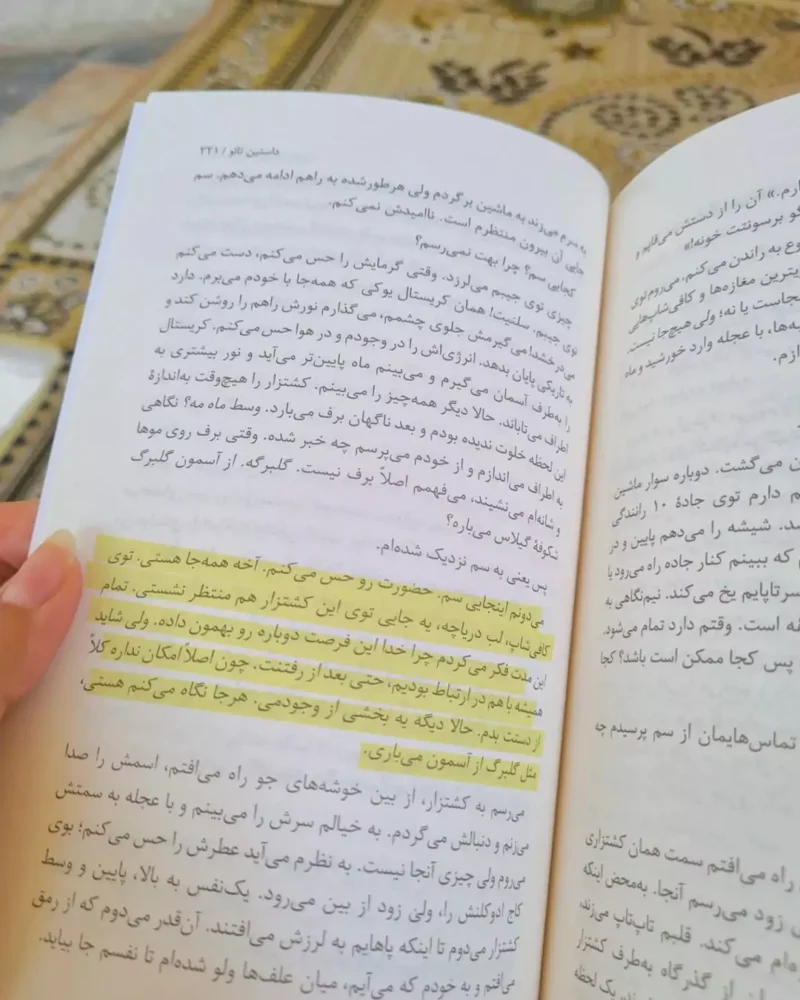 داستین تائو / ۲۲۱
به سرم می‌زند به ماشین برگردم ولی هرطورشده به راهم ادامه می‌دهم. سم
جایی آن بیرون منتظرم است. ناامیدش نمی‌کنم.
کجایی سم؟ چرا بهت نمی‌رسم؟
چیزی توی جیبم می‌لرزد. وقتی گرمایش را حس می‌کنم، دست می‌کنم
توی جیبم. سلنیت! همان کریستال یوکی که همه‌جا با خودم می‌برم. دارد
می‌درخشد! می‌گیرمش جلوی چشمم، می‌گذارم نورش راهم را روشن کند و
به تاریکی پایان بدهد. انرژی‌اش را در وجودم و در هوا حس می‌کنم. کریستال
را به‌طرف آسمان می‌گیرم و می‌بینم ماه پایین‌تر می‌آید و نور بیشتری به
اطراف می‌تاباند. حالا دیگر همه‌چیز را می‌بینم. کشتزار را هیچ‌وقت به‌اندازهٔ
این لحظه خلوت ندیده بودم و بعد ناگهان برف می‌بارد. وسط ماه مه؟ نگاهی
به اطراف می‌اندازم و از خودم می‌پرسم چه خبر شده. وقتی برف روی موها
و شانه‌ام می‌نشیند، می‌فهمم اصلاً برف نیست. گلبرگه. از آسمون گلبرگ
شکوفهٔ گیلاس می‌باره؟
پس یعنی به سم نزدیک شده‌ام.
می‌دونم اینجایی سم. حضورت رو حس می‌کنم. آخه همه‌جا هستی. توی
کافی‌شاپ، لب دریاچه، یه جایی توی این کشتزار هم منتظر نشستی. تمام
این مدت فکر می‌کردم چرا خدا این فرصت دوباره رو بهمون داده. ولی شاید
همیشه با هم در ارتباط بودیم، حتی بعد از رفتنت. چون اصلاً امکان نداره کلاً
از دستت بدم. حالا دیگه یه بخشی از وجودمی. هرجا نگاه می‌کنم هستی،
مثل گلبرگ از آسمون می‌باری.
می‌رسم به کشتزار، از بین خوشه‌های جو راه می‌افتم، اسمش را صدا
می‌زنم و دنبالش می‌گردم. به خیالم سرش را می‌بینم و با عجله به سمتش
می‌روم ولی چیزی آنجا نیست. به نظرم می‌آید عطرش را حس می‌کنم؛ بوی
کاج ادوکلنش را، ولی زود از بین می‌رود. یک‌نفس به بالا، پایین و وسط
کشتزار می‌دوم تا اینکه پاهایم به لرزش می‌افتند. آن‌قدر می‌دوم که از رمق
می‌افتم و به خودم که می‌آیم، میان علف‌ها ولو شده‌ام تا نفسم جا بیاید.
ارم.» آن را از دستش می‌قاپم و
گو برسونتت خونه!»
وع به راندن می‌کنم. می‌روم توی
یترین مغازه‌ها و کافی‌شاپ‌هایی
نجاست یا نه؛ ولی هیچ‌جا نیست.
به‌ها، با عجله وارد خورشید و ماه
ازم.
ن می‌گشت. دوباره سوار ماشین
م دارم توی جادهٔ ۱۰ رانندگی
سد. شیشه را می‌دهم پایین و در
م که ببینم کنار جاده راه می‌رود یا
سرتاپایم یخ می‌کند. نیم‌نگاهی به
قه است. وقتم دارد تمام می‌شود.
پس کجا ممکن است باشد؟ کجا
تماس‌هایمان از سم پرسیدم چه
راه می‌افتم سمت همان کشتزاری
ی زود می‌رسم آنجا. به‌محض اینکه
ه‌ام می‌کند. قلبم تاپ‌تاپ می‌زند،
ان از گذرگاه به‌طرف کشتزار
یک لحظه